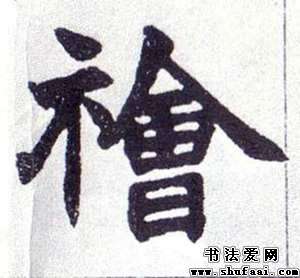 襘
书法爱网
www.shufaai.com